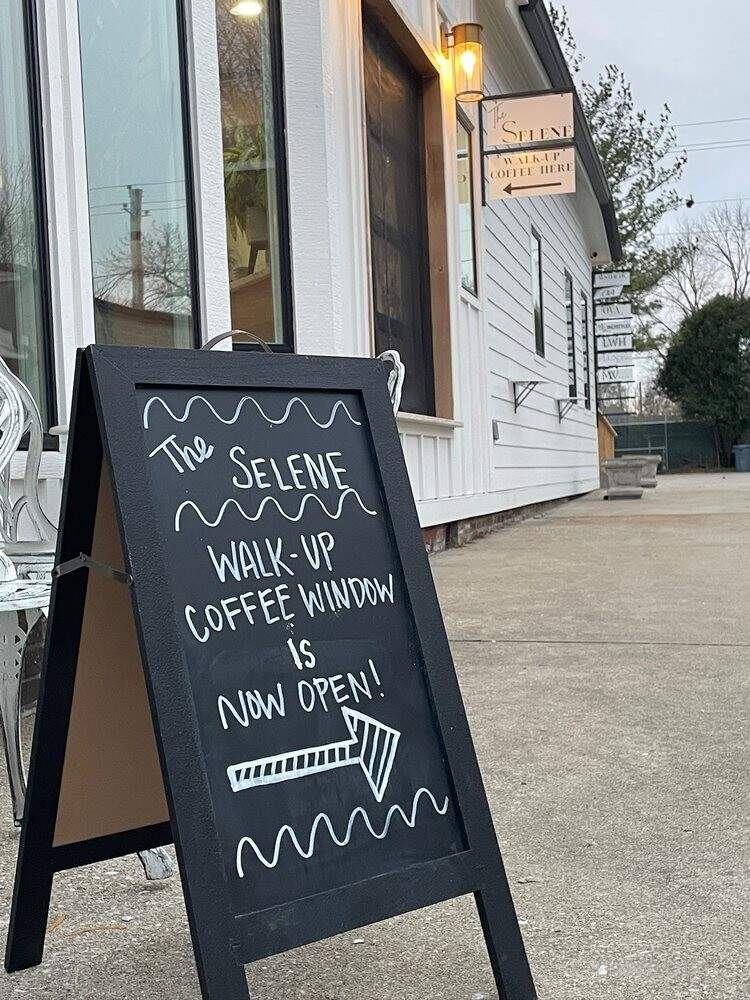 The
SELENE
WALK-UP
COFFEE HERE
The
SELENE
WALK-UP
COFFEE WINDOW
IS
NOW OPEN!
OVA
LWH
MV